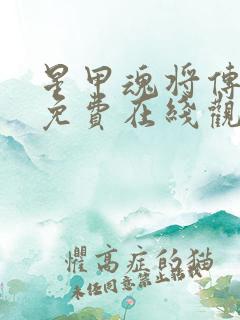 星甲魂将傳
免費在綫觀
懼高症的猫
未任同意禁止轉載